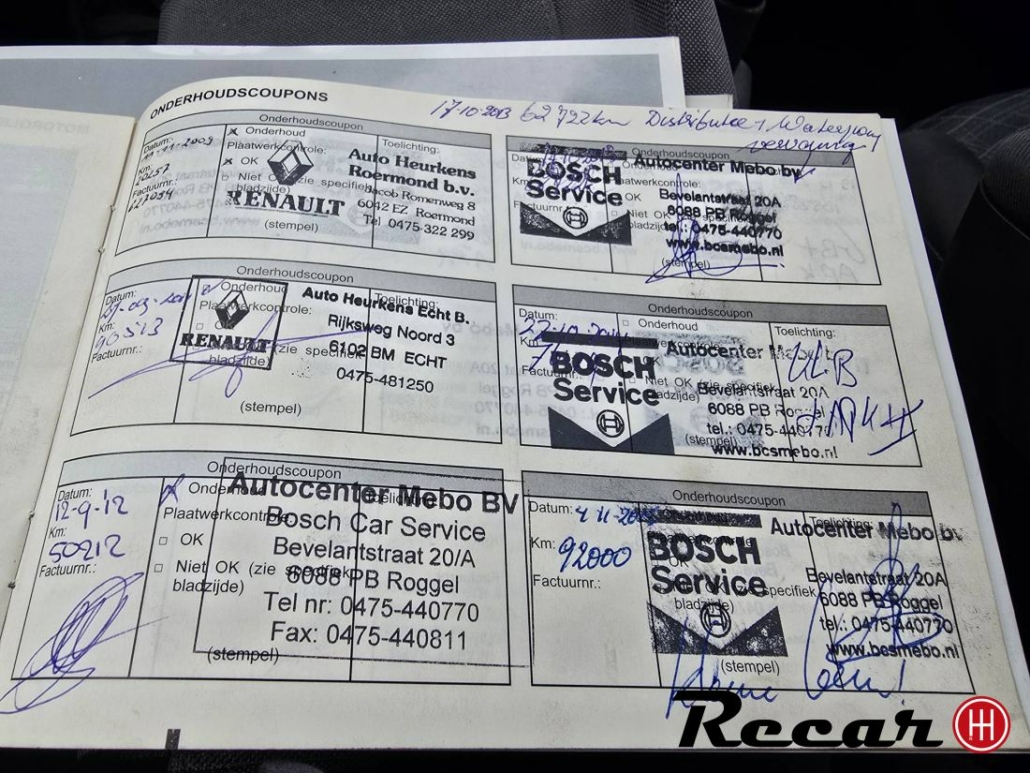 ONDERHOUDSCOUPONS
17-10-2013 62722km Distributie + Waterpomp
vervanging
Onderhoudscoupon
Datum:
Onderhoud
Toelichting:
Km:
OK
Niet OK (zie specifiek
bladzijde)
Factuurnr.:
RENAULT
Auto Heurkens
Roermond b.v.
Jacob Romenweg 8
6042 EZ Roermond
Tel 0475-322 299
(stempel)
Onderhoudscoupon
Datum:
Km:
Factuurnr.:
BOSCH
Service
Autocenter Mebo bv
Bevelantstraat 20A
6088 PB Roggel
tel.: 0475-440770
www.bcsmebo.nl
OK
Niet OK
bladzijde)
(stempel)
Onderhoudscoupon
Datum:
Onderhoud
Toelichting:
Plaatwerkcontrole:
Km:
Factuurnr.:
(zie specifiek
bladzijde)
RENAULT
Auto Heurkens Echt B.
Rijksweg Noord 3
6102 BM ECHT
0475-481250
(stempel)
Onderhoudscoupon
Datum:
Onderhoud
Toelichting:
Km:
Factuurnr.:
BOSCH
Service
Autocenter Mebo
Bevelantstraat 20A
6088 PB Roggel
tel.: 0475-440770
www.bcsmebo.nl
Niet OK (zie specifiek
bladzijde)
(stempel)
Onderhoudscoupon
Datum:
12-9-12
Onderhoud
Toelichting
Plaatwerkcontrole
Km:
50212
OK
Niet OK (zie specifiek
bladzijde)
Factuurnr.:
Autocenter Mebo BV
Bosch Car Service
Bevelantstraat 20/A
6088 PB Roggel
Tel nr: 0475-440770
Fax: 0475-440811
(stempel)
Onderhoudscoupon
Datum:
Km:
92000
Factuurnr.:
BOSCH
Service
Autocenter Mebo bv.
Bevelantstraat 20A
6088 PB Roggel
tel.: 0475-440770
www.bcsmebo.nl
specifiek
bladzijde)
(stempel)
Recar